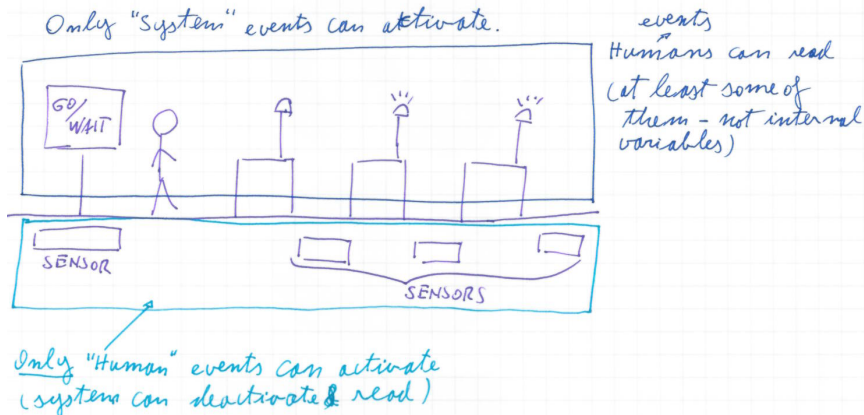 Only "System" events can aktivate.
events
Humans can read
(at least some of
them - not internal
variables)
GO/
WAIT
SENSOR
SENSORS
Only "Human" events can activate
(system can deactivate & read)